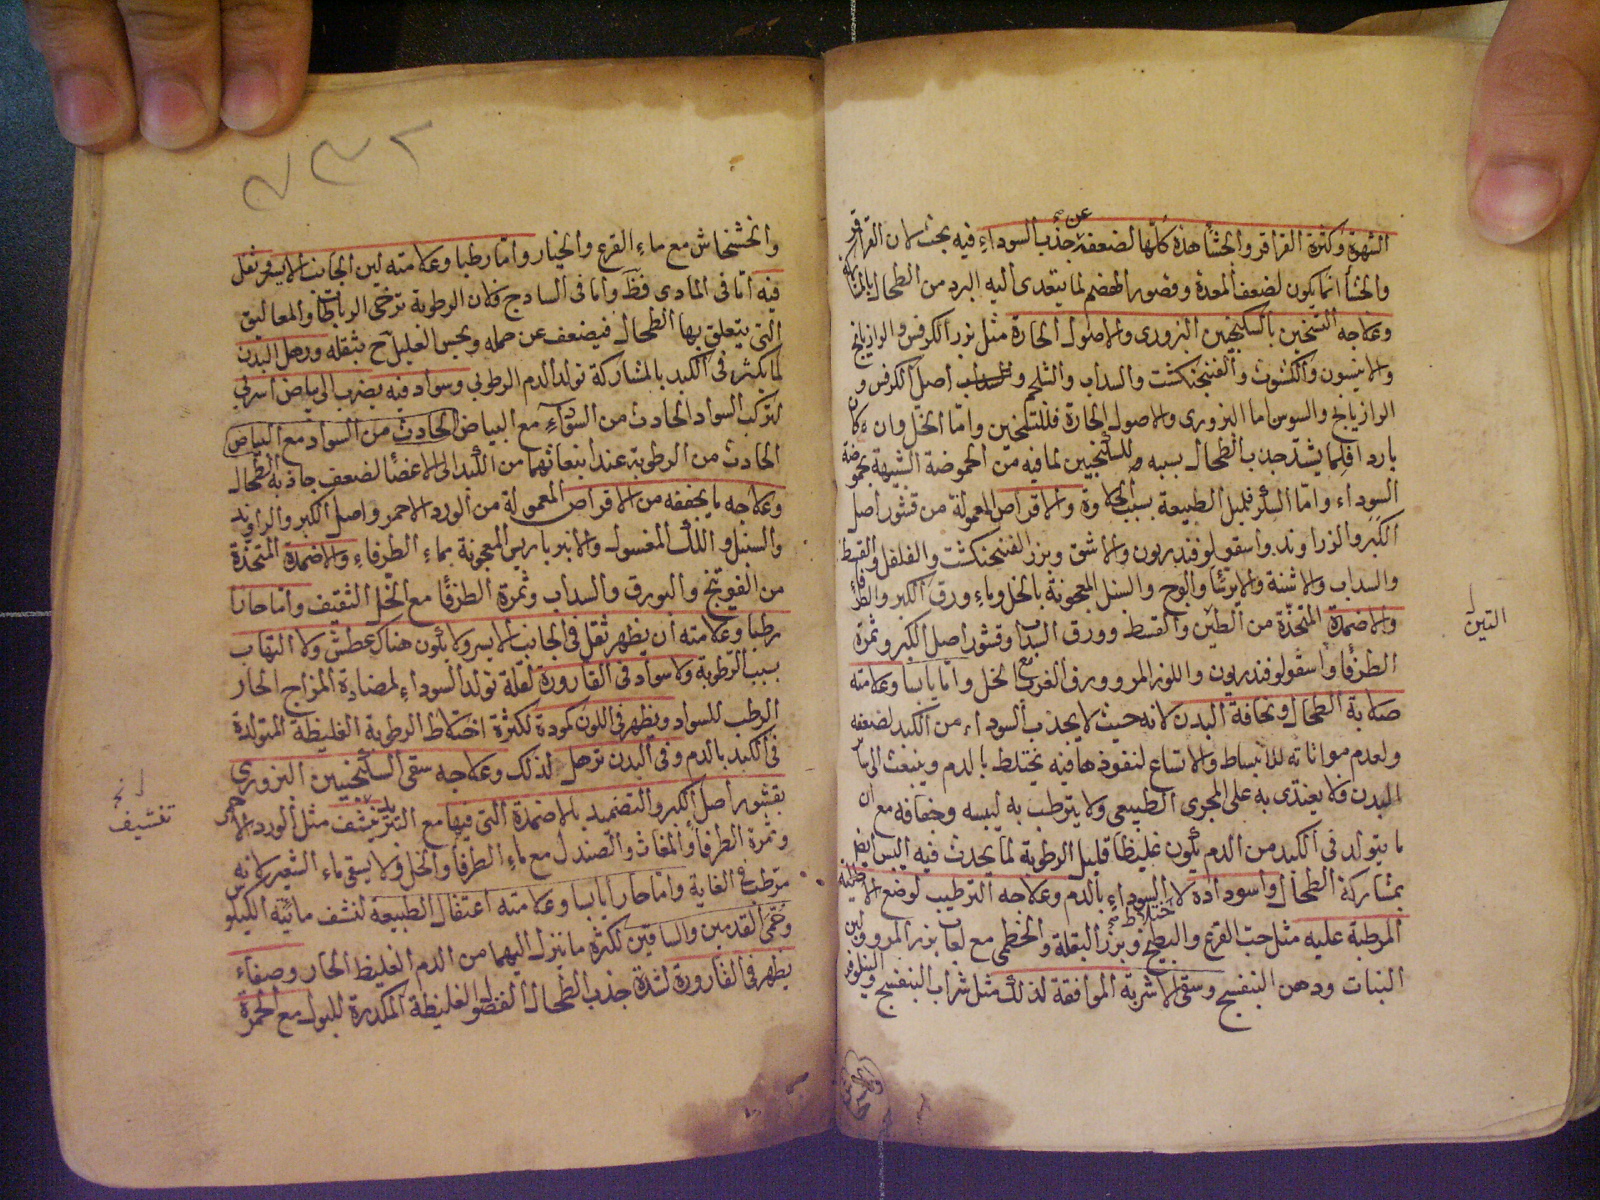 الشهوة وكثرة القراقر والجشأ هذه كلها لضعفه عن جذب السوداء فيه بحث لان القراقر
والجشأ انما يكون لضعف المعدة وقصور الهضم لما يتعدى اليه البرد من الطحال بالمشاركة
وعلاجه التسخين بالسكنجبين البزورى والاصول الحارة مثل بزر الكرفس والرازيانج
والانيسون والكشوث والفنجنكشت والسداب والشلجم و اصل الكرفس و
الرازيانج والسوس اما البزورى والاصول الحارة فللتسخين واما الخل وان كان
باردا فلما يشتد جذب الطحال بسببه للسكنجبين لما فيه من الحموضة الشبيهة بحموضة
السوداء واما السكر فلميل الطبيعة بسبب الحلاوة والاقراص المعمولة من قشور اصل
الكبر والزراوند واسقولوفندريون والاشق وبزر الفنجنكشت والفلفل والقسط
والسداب والاشنة والايرسا والوج والسنبل المعجونة بالخل وماء ورق الكبر والطرفاء
والاضمدة المتخذة من الطين والقسط وورق السداب وقشور اصل الكبر وثمرة
التين
الطرفا واسقولوفندريون واللوز المر وورق الغرب مع الخل واما يابسا وعلامته
صلابة الطحال ونحافة البدن لانه حيث لا يجذب السوداء من الكبد لضعفه
ولعدم مواتاته للانبساط والاتساع لنفوذها فيه يختلط بالدم وينبعث الى سائر
البدن فلا يغتذى به على المجرى الطبيعى ولا يترطب به ليبسه وجفافه مع ان
ما يتولد فى الكبد من الدم يكون غليظا قليل الرطوبة لما يحدث فيه اليبس ايضا
بمشاركة الطحال واسوداده لاختلاط السوداء بالدم وعلاجه الترطيب لوضع الاطلية
المرطبة عليه مثل حب القرع والبطيخ وبزر البقلة والخطمى مع لعاب بزر المرو ولبن
النبات ودهن البنفسج وسقى الاشربة الموافقة لذلك مثل شراب البنفسج والنيلوفر
والخشخاش مع ماء القرع والخيار واما رطبا وعلامته لين الجانب الايسر ثقل
فيه اما فى المادى فظ واما فى الساذج فلان الرطوبة ترخى الرباطات والمعاليق
التى يتعلق بها الطحال فيضعف عن حمله ويحس العليل ح بثقله ورهل البدن
لما يكثر فى الكبد بالمشاركة تولد الدم الرطوبى وسواد فيه يضرب الى بياض اسربى
لتركب السواد الحادث من السوداء مع البياض الحادث من السواد مع البياض
الحادث من الرطوبة عند انبعاثهما من الكبد الى الاعضا لضعف جاذبة الطحال
وعلاجه ما يخففه من الاقراص المعمولة من الورد الاحمر واصل الكبر والراوند
والسنبل واللك المغسول والانبرباريس المعجونة بماء الطرفاء والاضمدة المتخذة
من الفوتنج والبورق والسداب وثمرة الطرفا مع الخل الثقيف واما حارا
رطبا وعلامته ان يظهر ثقل فى الجانب الايسر ولا يكون هناك عطش ولا التهاب
بسبب الرطوبة ولا سواد فى القارورة لقلة تولد السوداء لمضادة المزاج الحار
الرطب للسواد ويظهر فى اللون كمودة لكثرة اختلاط الرطوبة الغليظة المتولدة
فى الكبد بالدم وفى البدن ترهل لذلك وعلاجه سقى السكنجبين البزورى
بقشور اصل الكبر والتضميد بالاضمدة التى فيها مع التبريد تنشف مثل الورد الاحمر
تنشيف
وثمرة الطرفا والمغاث والصندل مع ماء الطرفا والخل ولا يسقى ماء الشعير لانه
مرطب فى الغاية واما حارا يابسا وعلامته اعتقال الطبيعة لنشف مائية الكيلوس
وحمى القدمين والساقين لكثرة ما ينزل اليهما من الدم الغليظ الحار وصفاء
يظهر فى القارورة لشدة جذب الطحال الفضول الغليظة المكدرة للبول مع الحمرة